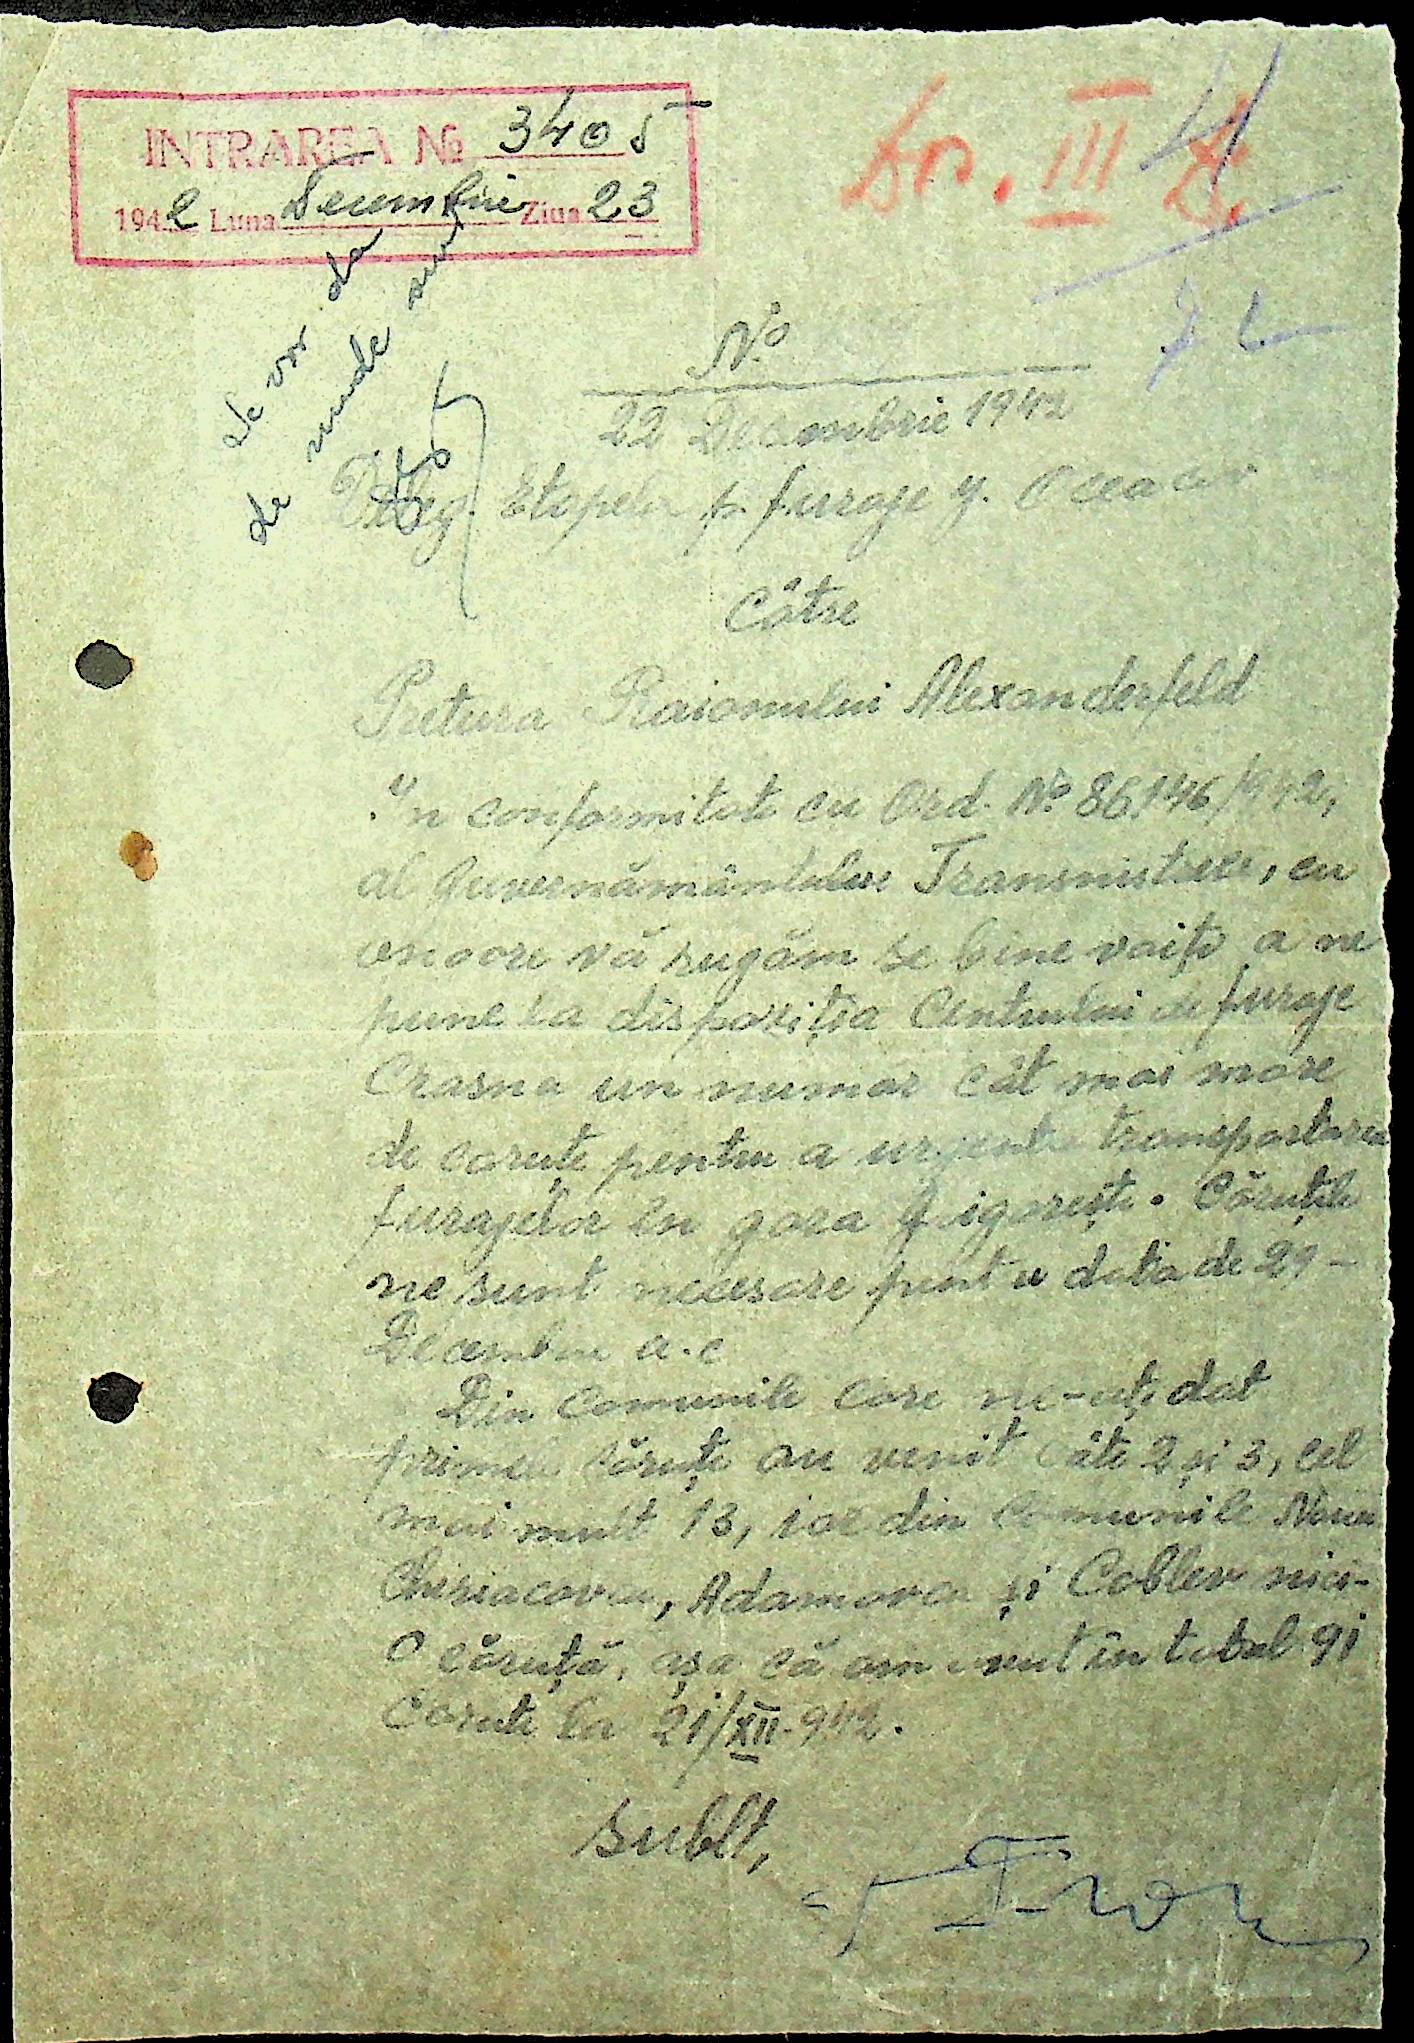 INTRAREA No 3405
1942 Luna Decembrie Ziua 23
Se vor da
de unde nu
No
22 Decembrie 1942
Deleg. Etapelor p. furaje j. Oceacov
Către
Pretura Raionului Alexanderfeld
În conformitate cu Ord. No 86.146/942,
al Guvernământului Transnistriei, cu
onoare vă rugăm se bine voiți a ne
pune la dispoziția Centrului de furaje
Crasna un numar cât mai mare
de caruțe pentru a urgenta transportarea
furajelor în gara Grigorești. Căruțele
ne sunt necesare pentru data de 29-
Decembrie a.c
Din Comunile care ne-ați dat
primele căruțe au venit câte 2 și 3, cel
mai mult 13, iar din Comunile Nova
Chiriacovca, Adamovca și Coblev nici-
o căruță, așa că am avut în total 91
Carute la 21/XII-942.
Sublt,